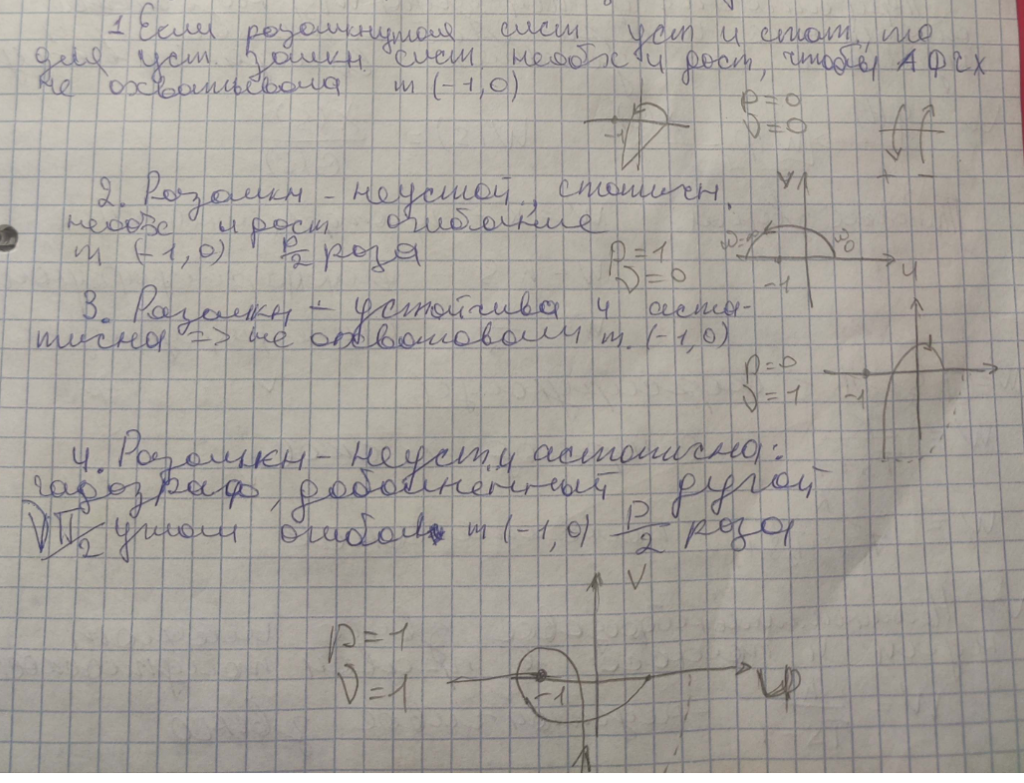 1 Если разомкнутая сист уст и стат, то
для уст замкн сист необх и дост, чтобы АФЧХ
не охватывала т (-1,0)
-1
p=0
ν=0
+ -
2. Разомкн - неустой, статичн.
необх и дост огибание
т (-1,0) p/2 раза
p=1
ν=0
V
-1
U
3. Разомкн - устойчива и аста-
тична => не охватовали т. (-1,0)
p=0
ν=1
-1
4. Разомкн - неуст и астатична:
годограф, дополненный дугой
νπ/2 углом огибал т (-1,0) p/2 раза
p=1
ν=1
V
-1